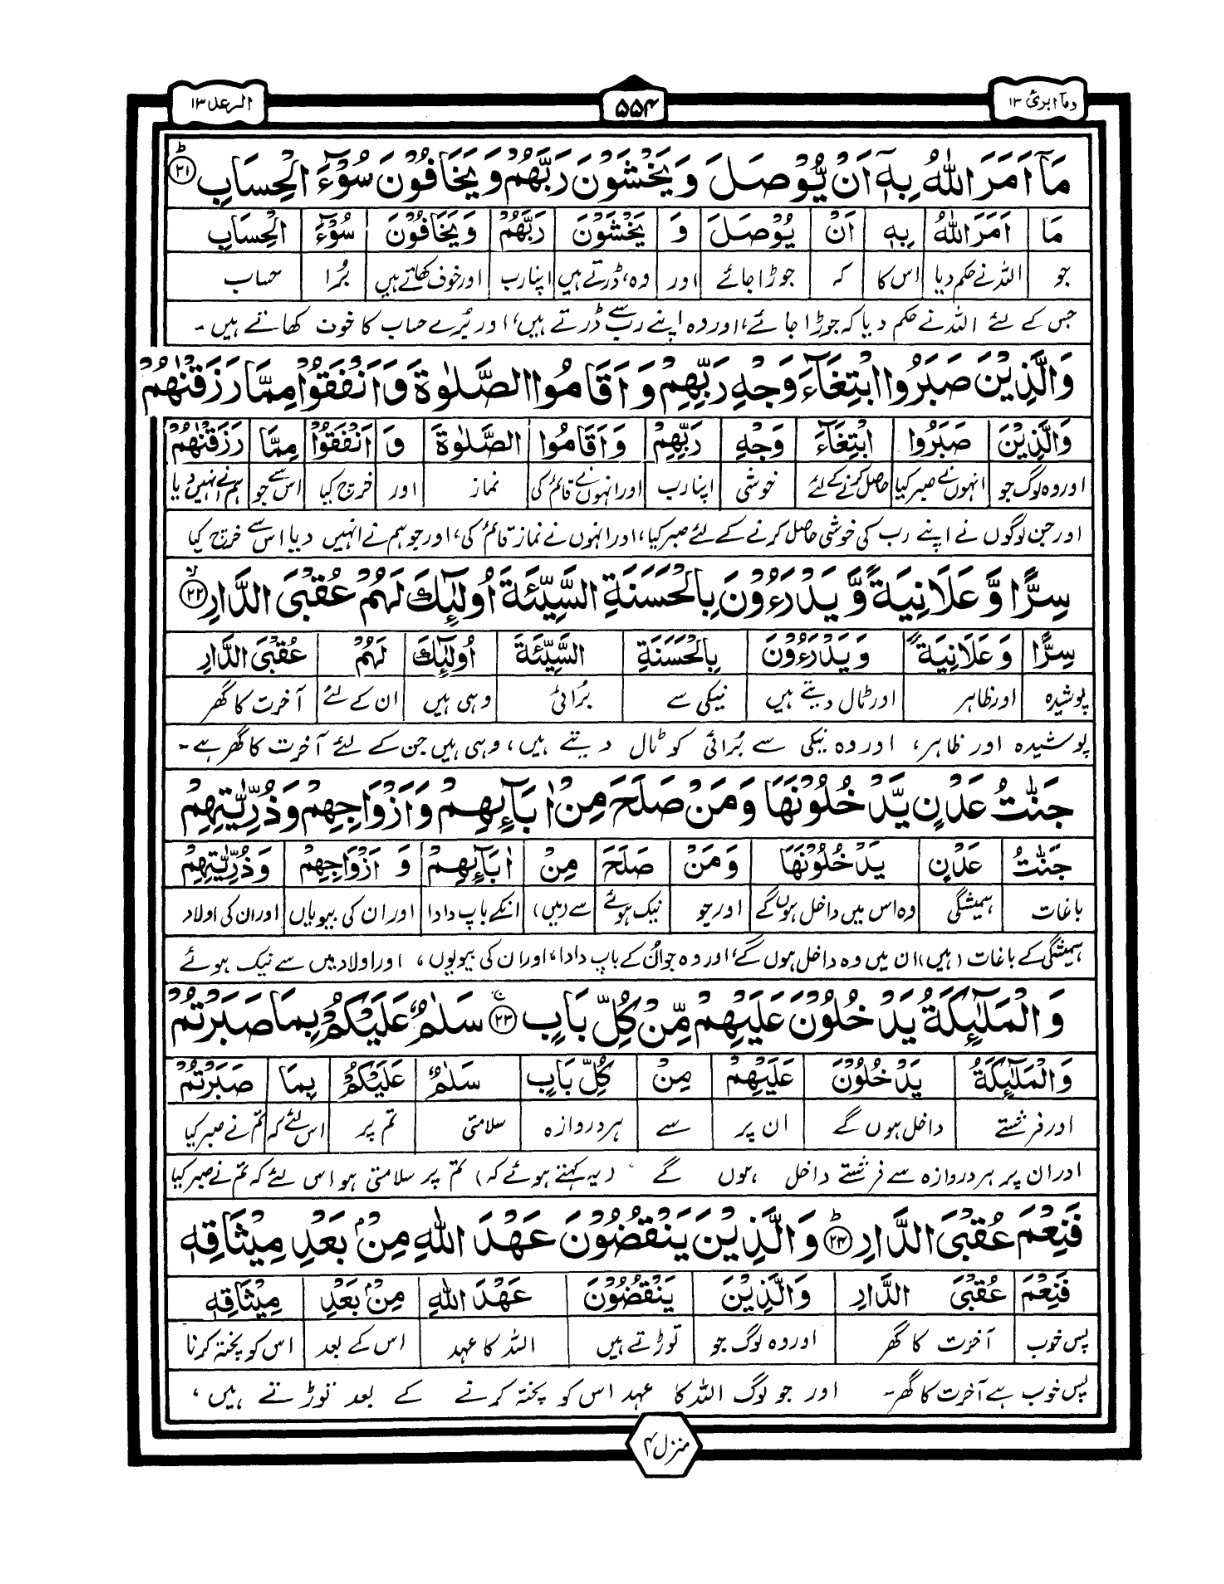 ومآ ابرئ ۱۳
۵۵۴
الرعد ۱۳
مَاۤ اَمَرَ اللّٰهُ بِهٖۤ اَنْ یُّوْصَلَ وَ یَخْشَوْنَ رَبَّهُمْ وَ یَخَافُوْنَ سُوْٓءَ الْحِسَابِ ؕ﴿۲۱﴾
مَا اَمَرَ اللّٰهُ بِهٖ اَنْ یُوْصَلَ وَ یَخْشَوْنَ رَبَّهُمْ وَیَخَافُوْنَ سُوْٓءَ الْحِسَابِ
جو اللہ نے حکم دیا اس کا کہ جوڑا جائے اور وہ ڈرتے ہیں اپنا رب اور خوف کھاتے ہیں بُرا حساب
جس کے لئے اللہ نے حکم دیا کہ جوڑا جائے، اور وہ اپنے رب سے ڈرتے ہیں، اور بُرے حساب کا خوف کھاتے ہیں۔
وَالَّذِیْنَ صَبَرُوا ابْتِغَآءَ وَجْهِ رَبِّهِمْ وَ اَقَامُوا الصَّلٰوةَ وَ اَنْفَقُوْا مِمَّا رَزَقْنٰهُمْ
وَالَّذِیْنَ صَبَرُوا ابْتِغَآءَ وَجْهِ رَبِّهِمْ وَاَقَامُوا الصَّلٰوةَ وَ اَنْفَقُوْا مِمَّا رَزَقْنٰهُمْ
اور وہ لوگ جو انہوں نے صبر کیا حاصل کرنے کے لئے خوشی اپنا رب اور انہوں نے قائم کی نماز اور خرچ کیا اس سے جو ہم نے انہیں دیا
اور جن لوگوں نے اپنے رب کی خوشی حاصل کرنے کے لئے صبر کیا، اور انہوں نے نماز قائم کی، اور جو ہم نے انہیں دیا اس سے خرچ کیا
سِرًّا وَّ عَلَانِیَةً وَّ یَدْرَءُوْنَ بِالْحَسَنَةِ السَّیِّئَةَ اُولٰٓئِكَ لَهُمْ عُقْبَی الدَّارِ ۙ﴿۲۲﴾
سِرًّا وَّعَلَانِیَةً وَّیَدْرَءُوْنَ بِالْحَسَنَةِ السَّیِّئَةَ اُولٰٓئِكَ لَهُمْ عُقْبَی الدَّارِ
پوشیدہ اور ظاہر اور ٹال دیتے ہیں نیکی سے بُرائی وہی ہیں ان کے لئے آخرت کا گھر
پوشیدہ اور ظاہر، اور وہ نیکی سے بُرائی کو ٹال دیتے ہیں، وہی ہیں جن کے لئے آخرت کا گھر ہے۔
جَنّٰتُ عَدْنٍ یَّدْخُلُوْنَهَا وَمَنْ صَلَحَ مِنْ اٰبَآئِهِمْ وَاَزْوَاجِهِمْ وَذُرِّیّٰتِهِمْ
جَنّٰتُ عَدْنٍ یَدْخُلُوْنَهَا وَمَنْ صَلَحَ مِنْ اٰبَآئِهِمْ وَ اَزْوَاجِهِمْ وَذُرِّیّٰتِهِمْ
باغات ہمیشگی وہ اس میں داخل ہوں گے اور جو نیک ہوئے سے (میں) انکے باپ دادا اور ان کی بیویاں اور ان کی اولاد
ہمیشگی کے باغات (ہیں) ان میں وہ داخل ہوں گے، اور وہ جو ان کے باپ دادا، اور ان کی بیویوں، اور اولاد میں سے نیک ہوئے
وَ الْمَلٰٓئِكَةُ یَدْخُلُوْنَ عَلَیْهِمْ مِّنْ كُلِّ بَابٍ ۚ﴿۲۳﴾ سَلٰمٌ عَلَیْكُمْ بِمَا صَبَرْتُمْ
وَالْمَلٰٓئِكَةُ یَدْخُلُوْنَ عَلَیْهِمْ مِنْ كُلِّ بَابٍ سَلٰمٌ عَلَیْكُمْ بِمَا صَبَرْتُمْ
اور فرشتے داخل ہوں گے ان پر سے ہر دروازہ سلامتی تم پر اس لئے کہ تم نے صبر کیا
اور ان پر ہر دروازہ سے فرشتے داخل ہوں گے (یہ کہتے ہوئے کہ) تم پر سلامتی ہو اس لئے کہ تم نے صبر کیا
فَنِعْمَ عُقْبَی الدَّارِ ؕ﴿۲۴﴾ وَالَّذِیْنَ یَنْقُضُوْنَ عَهْدَ اللّٰهِ مِنْۢ بَعْدِ مِیْثَاقِهٖ
فَنِعْمَ عُقْبَی الدَّارِ وَالَّذِیْنَ یَنْقُضُوْنَ عَهْدَ اللّٰهِ مِنْۢ بَعْدِ مِیْثَاقِهٖ
پس خوب آخرت کا گھر اور وہ لوگ جو توڑتے ہیں اللہ کا عہد اس کے بعد اس کو پختہ کرنا
پس خوب ہے آخرت کا گھر۔ اور جو لوگ اللہ کا عہد اس کو پختہ کرنے کے بعد توڑتے ہیں،
منزل ۳